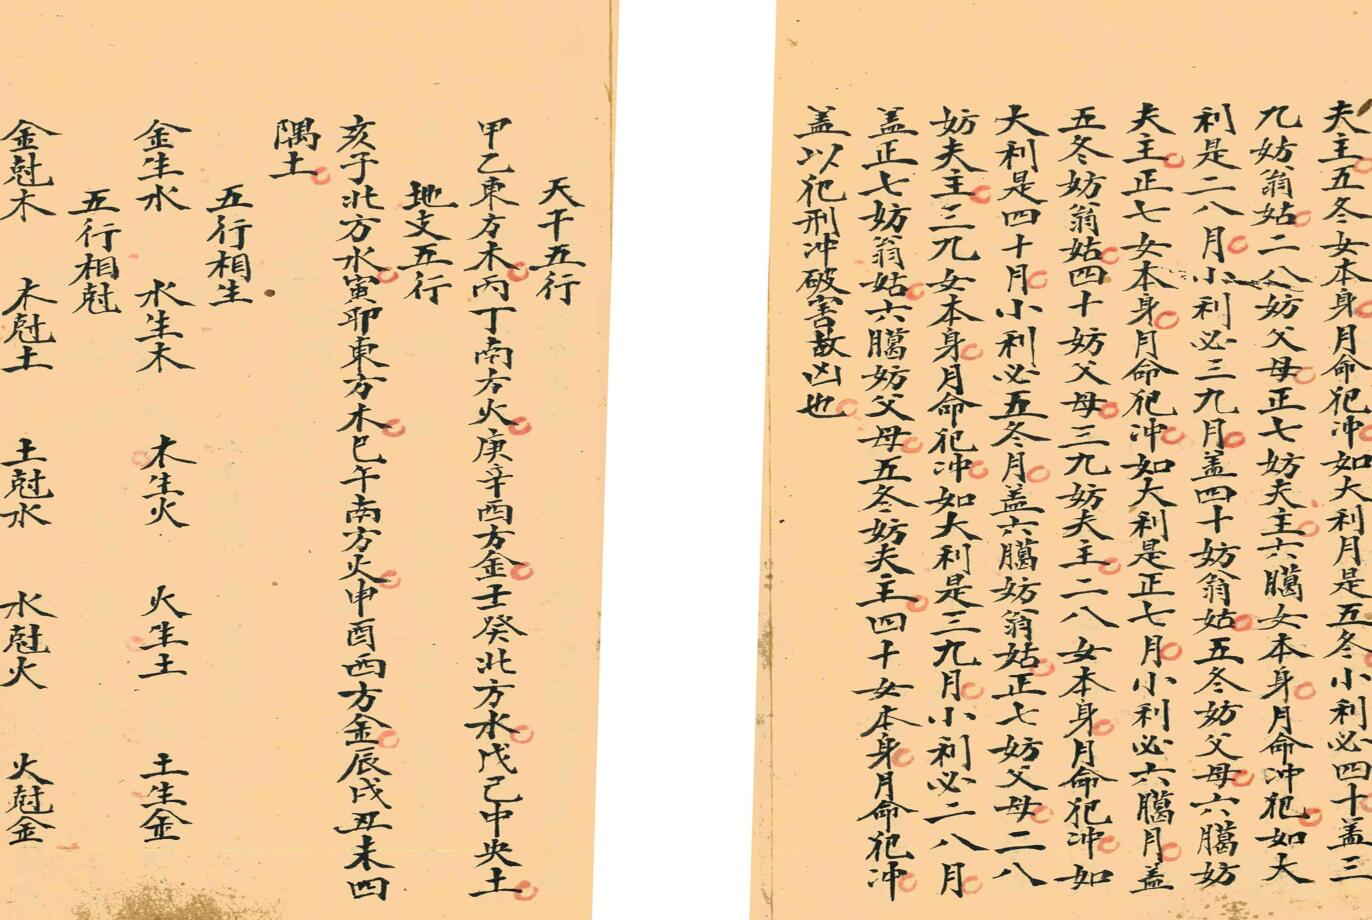 夫主五冬女本身月命犯冲如大利月是五冬小利必四十盖三
九妨翁姑二八妨父母正七妨夫主六臈女本身月命冲犯如大
利是二八月小利必三九月盖四十妨翁姑五冬妨父母六臈妨
夫主正七女本身月命犯冲如大利是正七月小利必六臈月盖
五冬妨翁姑四十妨父母三九妨夫主二八女本身月命犯冲如
大利是四十月小利必五冬月盖六臈妨翁姑正七妨父母二八
妨夫主三九女本身月命犯冲如大利是三九月小利必二八月
盖正七妨翁姑六臈妨父母五冬妨夫主四十女本身月命犯冲
盖以犯刑冲破害故凶也
天干五行
甲乙東方木丙丁南方火庚辛西方金壬癸北方水戊己中央土
地支五行
亥子北方水寅卯東方木巳午南方火申酉西方金辰戌丑未四
隅土
五行相生
金生水 水生木 木生火 火生土 土生金
五行相尅
金尅木 木尅土 土尅水 水尅火 火尅金